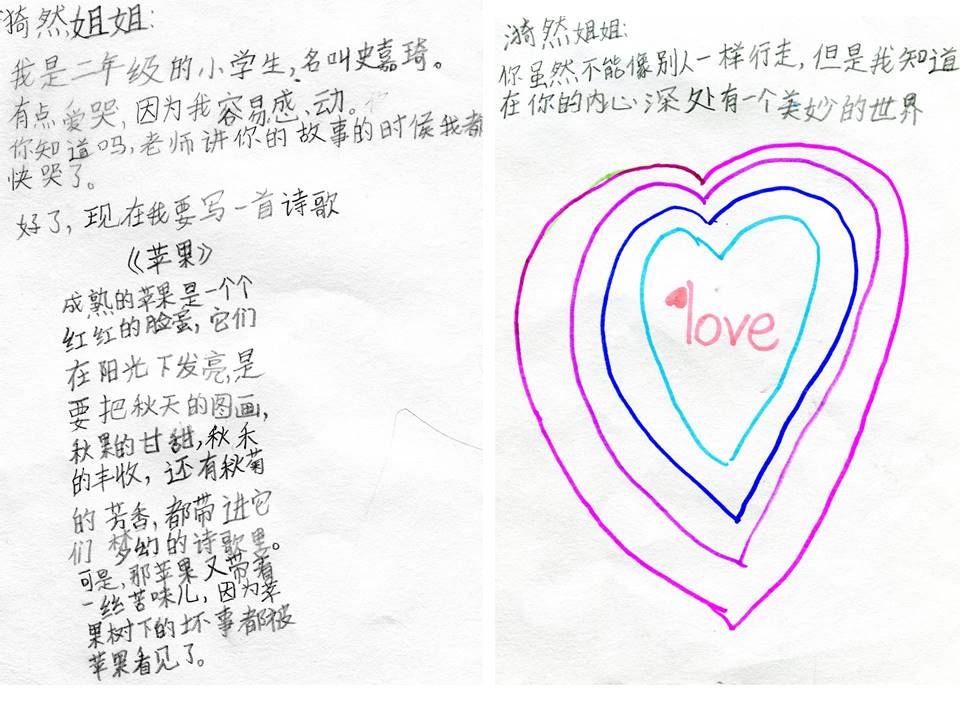 漪然姐姐:
我是二年级的小学生,名叫史嘉琦。
有点爱哭,因为我容易感动。
你知道吗,老师讲你的故事的时侯我都
快哭了。
好了,现在我要写一首诗歌
《苹果》
成熟的苹果是一个个
红红的脸蛋,它们
在阳光下发亮,是
要把秋天的图画,
秋果的甘甜,秋禾
的丰收,还有秋菊
的芳香,都带进它
们梦幻的诗歌里。
可是,那苹果又带着
一丝苦味儿,因为苹
果树下的坏事都被
苹果看见了。
漪然姐姐:
你虽然不能像别人一样行走,但是我知道
在你的内心深处有一个美妙的世界
love